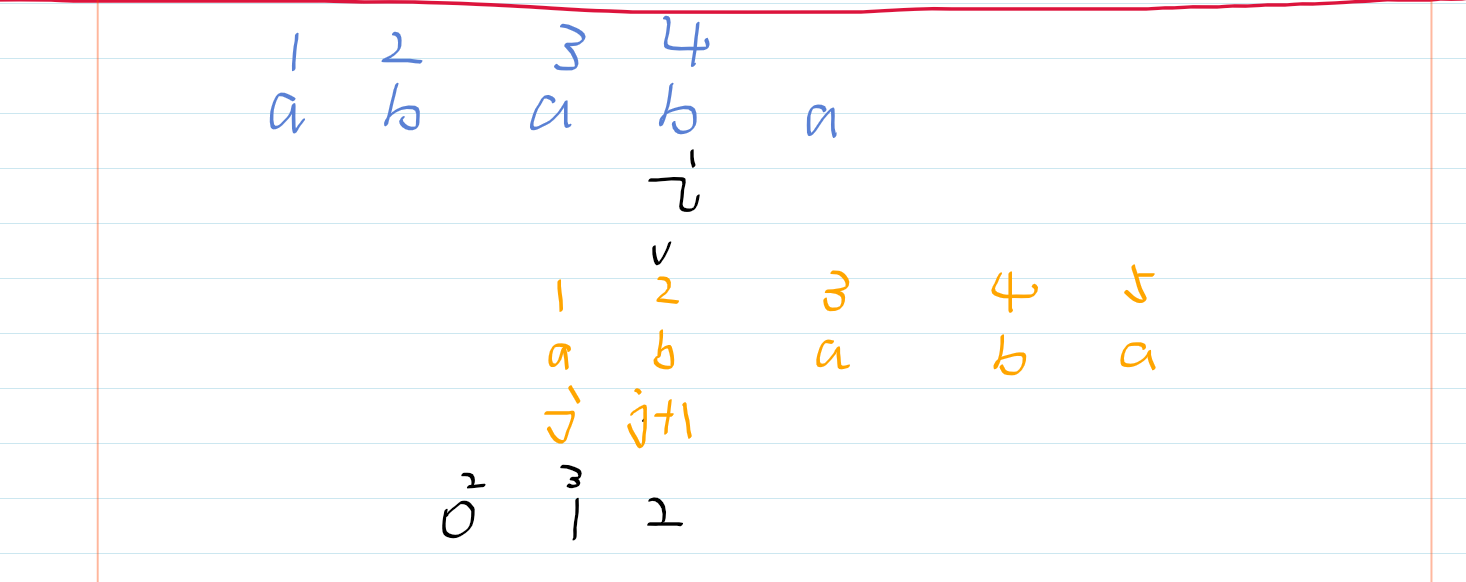 1 2 3 4
a b a b a
i
v
1 2 3 4 5
a b a b a
j j+1
2 3
0 1 2